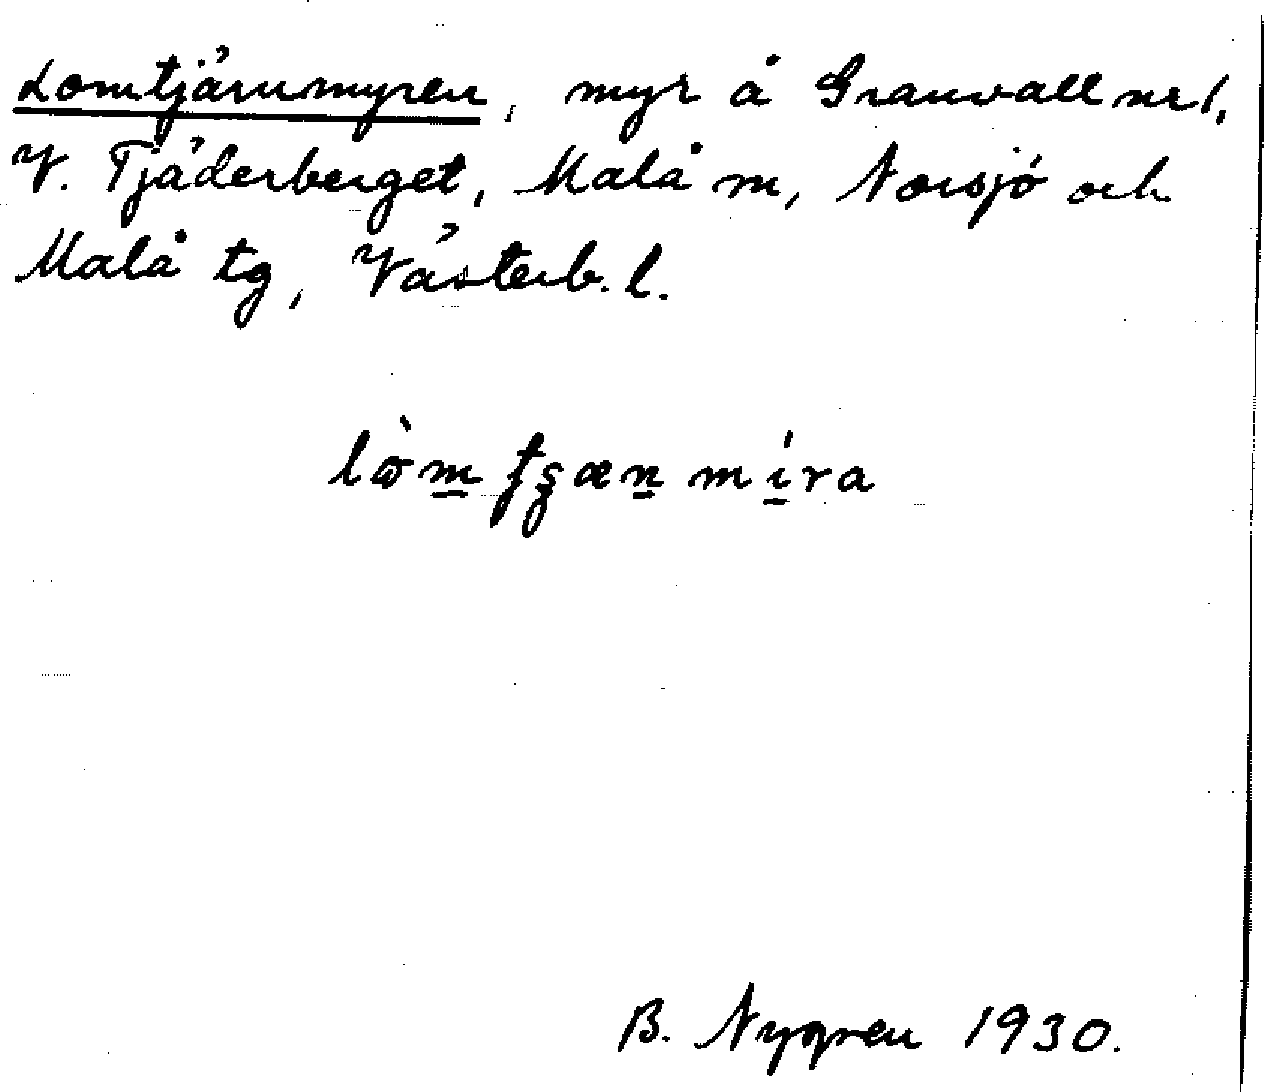 Lomtjärnmyren, myr å Granvall nr 1,
V. Tjäderberget, Malå sn, Norsjö och
Malå tg, Västerb. l.
lò̀m tşæn míra
B. Nygren 1930.